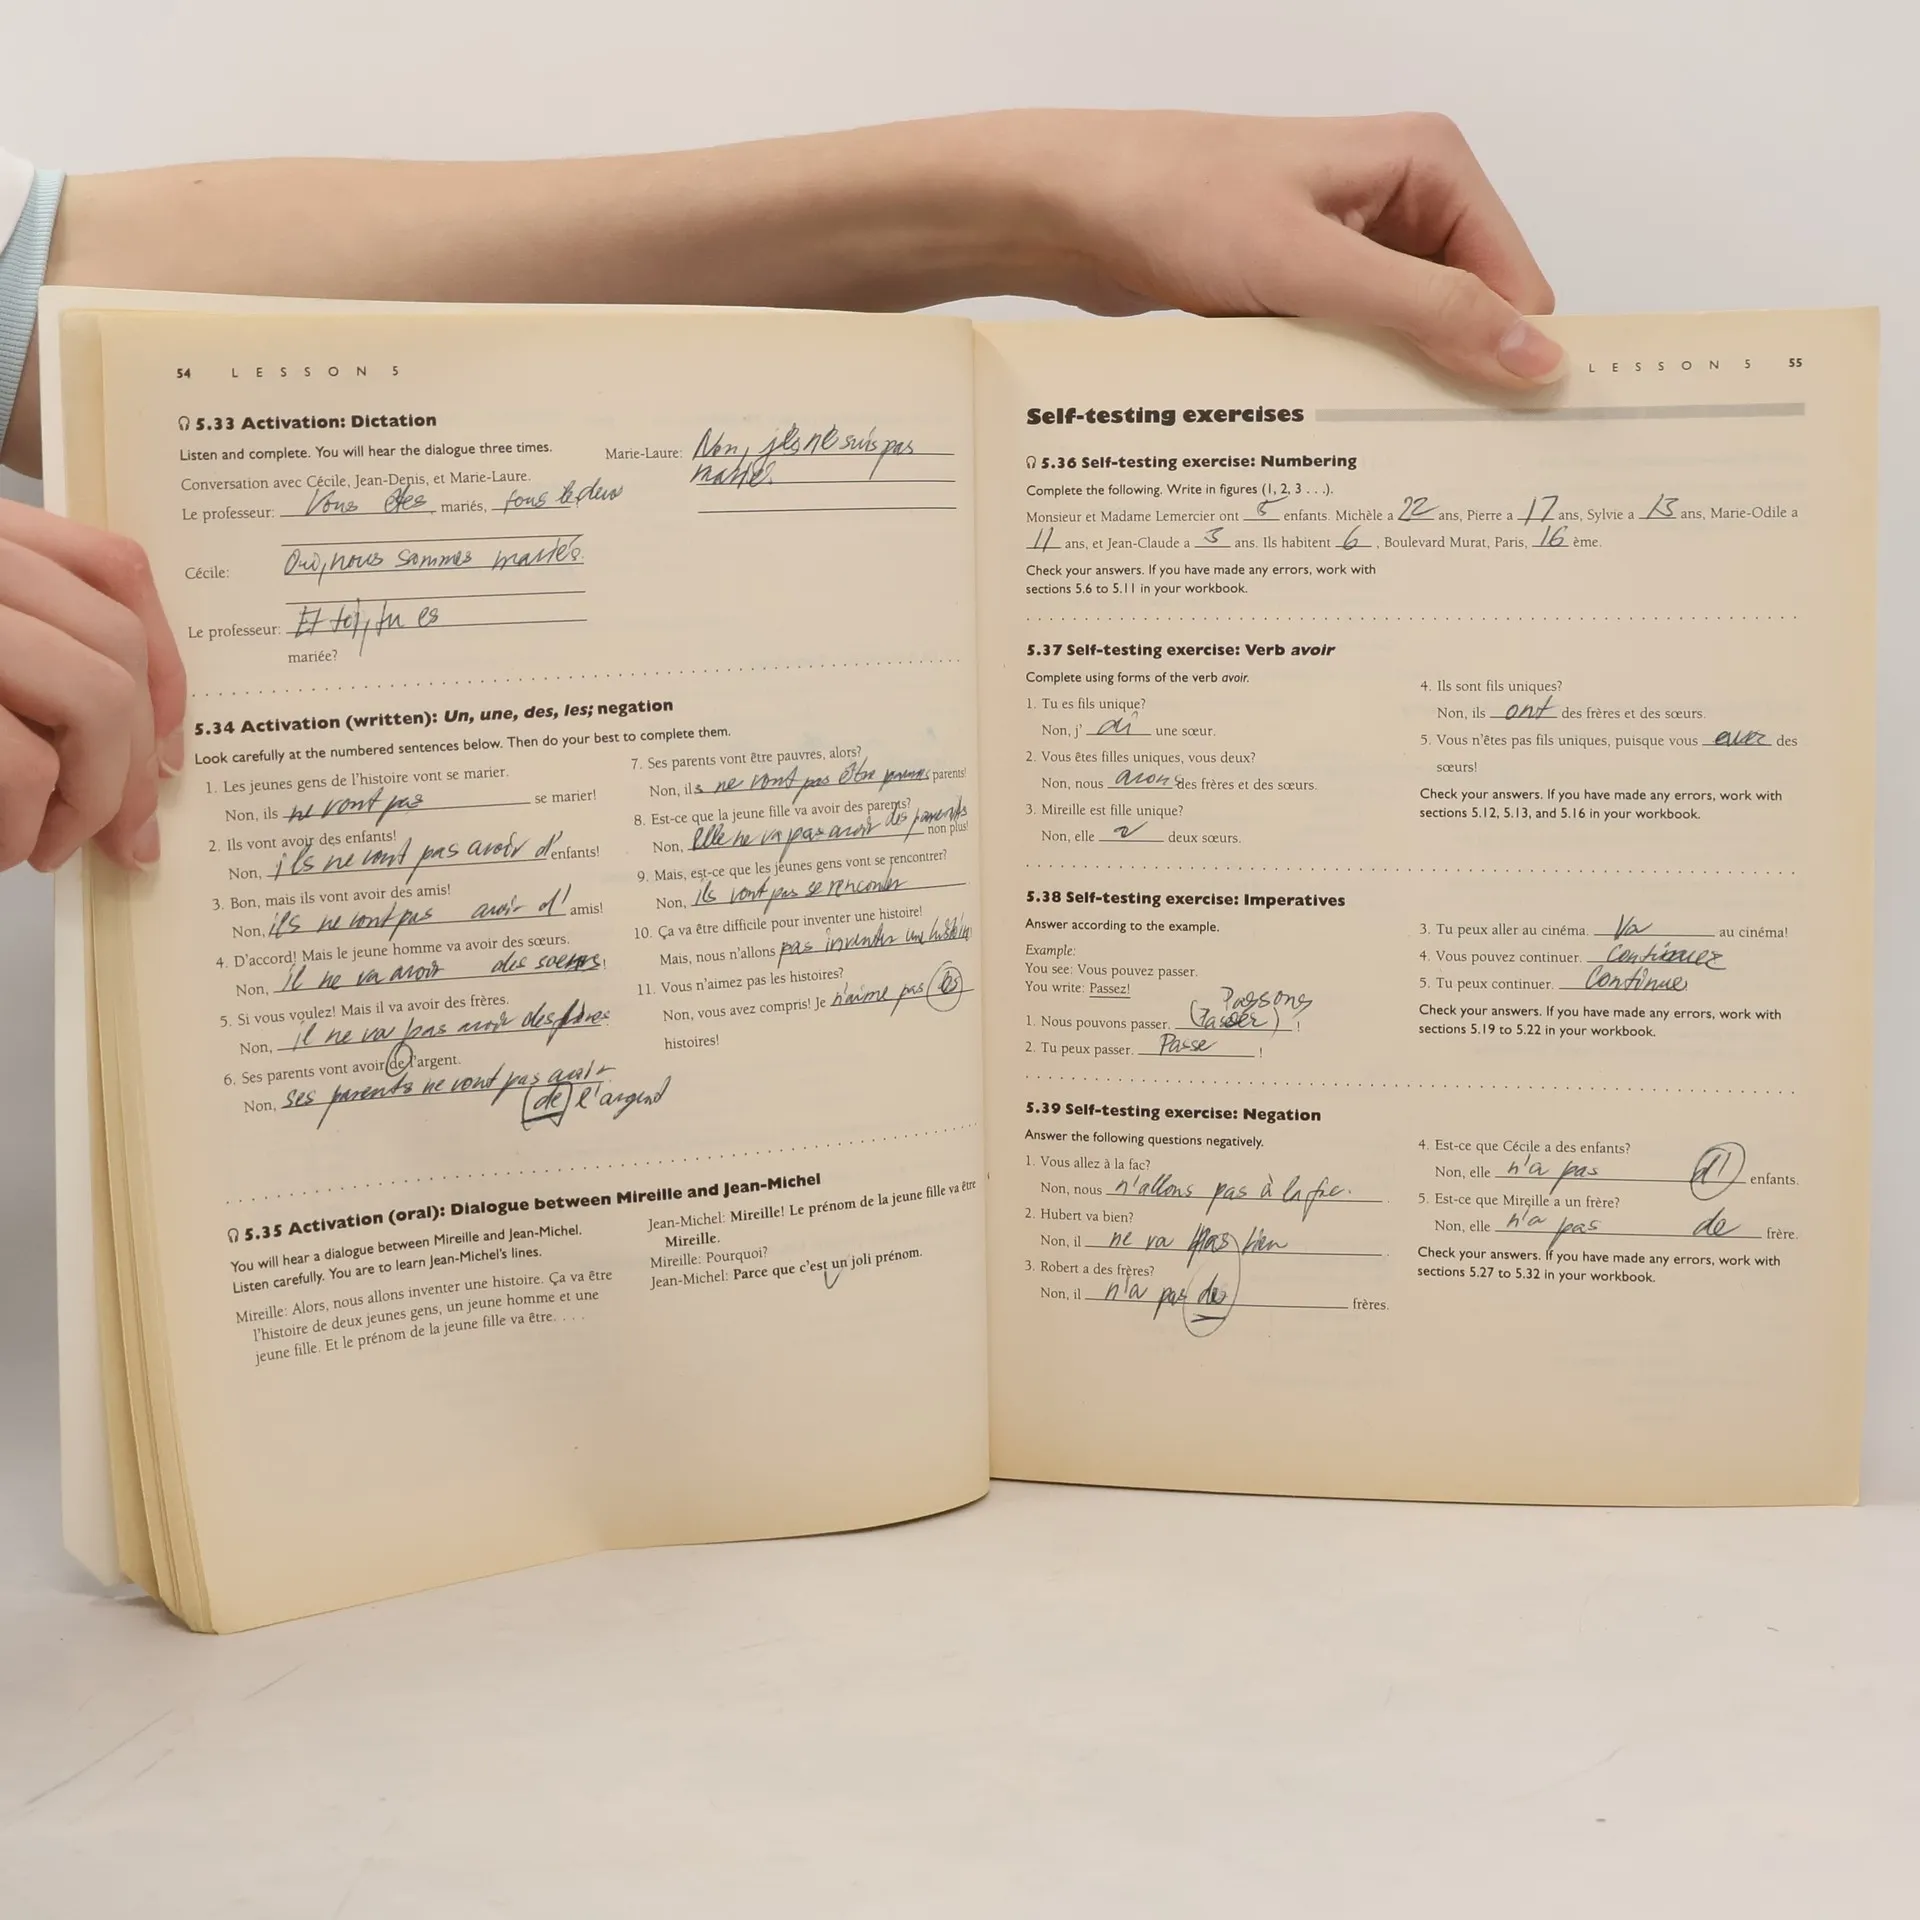 54 LESSON 5
5.33 Activation: Dictation
Listen and complete. You will hear the dialogue three times.
Conversation avec Cécile, Jean-Denis, et Marie-Laure.
Le professeur: Vous êtes mariés, tous les deux
Cécile: Oui, nous sommes mariés.
Le professeur: Et toi, tu es
mariée?
Marie-Laure: Non, je ne suis pas
mariée.
5.34 Activation (written): Un, une, des, les; negation
Look carefully at the numbered sentences below. Then do your best to complete them.
1. Les jeunes gens de l'histoire vont se marier.
Non, ils ne vont pas se marier!
2. Ils vont avoir des enfants!
Non, ils ne vont pas avoir d'enfants!
3. Bon, mais ils vont avoir des amis!
Non, ils ne vont pas avoir d' amis!
4. D'accord! Mais le jeune homme va avoir des sœurs.
Non, il ne va avoir des soeurs!
5. Si vous voulez! Mais il va avoir des frères.
Non, il ne va pas avoir des frères
6. Ses parents vont avoir de l'argent.
Non, ses parents ne vont pas avoir
de l'argend
7. Ses parents vont être pauvres, alors?
Non, ils ne vont pas être parents!
8. Est-ce que la jeune fille va avoir des parents?
Non, elle ne va pas avoir des parents non plus!
9. Mais, est-ce que les jeunes gens vont se rencontrer?
Non, ils vont pas se
10. Ça va être difficile pour inventer une histoire!
Mais, nous n'allons pas inventer une histoire
11. Vous n'aimez pas les histoires?
Non, vous avez compris! Je n'aime pas les
histoires!
5.35 Activation (oral): Dialogue between Mireille and Jean-Michel
You will hear a dialogue between Mireille and Jean-Michel.
Listen carefully. You are to learn Jean-Michel's lines.
Mireille: Alors, nous allons inventer une histoire. Ça va être
l'histoire de deux jeunes gens, un jeune homme et une
jeune fille. Et le prénom de la jeune fille va être. . . .
Jean-Michel: Mireille! Le prénom de la jeune fille va être
Mireille.
Mireille: Pourquoi?
Jean-Michel: Parce que c'est un joli prénom.
LESSON 5 55
Self-testing exercises
5.36 Self-testing exercise: Numbering
Complete the following. Write in figures (1, 2, 3 . . .).
Monsieur et Madame Lemercier ont 5 enfants. Michèle a 22 ans, Pierre a 17 ans, Sylvie a 13 ans, Marie-Odile a
11 ans, et Jean-Claude a 3 ans. Ils habitent 6, Boulevard Murat, Paris, 16 ème.
Check your answers. If you have made any errors, work with
sections 5.6 to 5.11 in your workbook.
5.37 Self-testing exercise: Verb avoir
Complete using forms of the verb avoir.
1. Tu es fils unique?
Non, j' ai une sœur.
2. Vous êtes filles uniques, vous deux?
Non, nous avons des frères et des sœurs.
3. Mireille est fille unique?
Non, elle a deux sœurs.
4. Ils sont fils uniques?
Non, ils ont des frères et des sœurs.
5. Vous n'êtes pas fils uniques, puisque vous avez des
sœurs!
Check your answers. If you have made any errors, work with
sections 5.12, 5.13, and 5.16 in your workbook.
5.38 Self-testing exercise: Imperatives
Answer according to the example.
Example:
You see: Vous pouvez passer.
You write: Passez!
Passons
1. Nous pouvons passer. (Passer) !
2. Tu peux passer. Passe !
3. Tu peux aller au cinéma. Va au cinéma!
4. Vous pouvez continuer. Continuez
5. Tu peux continuer. Continue
Check your answers. If you have made any errors, work with
sections 5.19 to 5.22 in your workbook.
5.39 Self-testing exercise: Negation
Answer the following questions negatively.
1. Vous allez à la fac?
Non, nous n'allons pas à la fac.
2. Hubert va bien?
Non, il ne va pas bien
3. Robert a des frères?
Non, il n'a pas des frères.
4. Est-ce que Cécile a des enfants?
Non, elle n'a pas d' enfants.
5. Est-ce que Mireille a un frère?
Non, elle n'a pas de frère.
Check your answers. If you have made any errors, work with
sections 5.27 to 5.32 in your workbook.